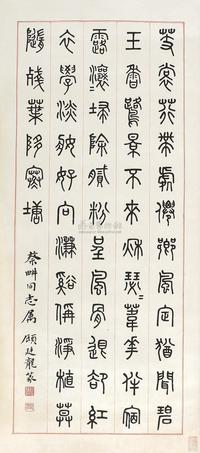 芰裳荇帶處僊鄉風定猶聞碧
玉香鷺景不來秋瑟〻葦花伴宿
露瀼〻埽除膩粉呈風骨退卻紅
衣學淡妝好向濂谿偁淨植莫
隨殘葉墮寒塘
蔡畊同志屬 顧廷龍篆